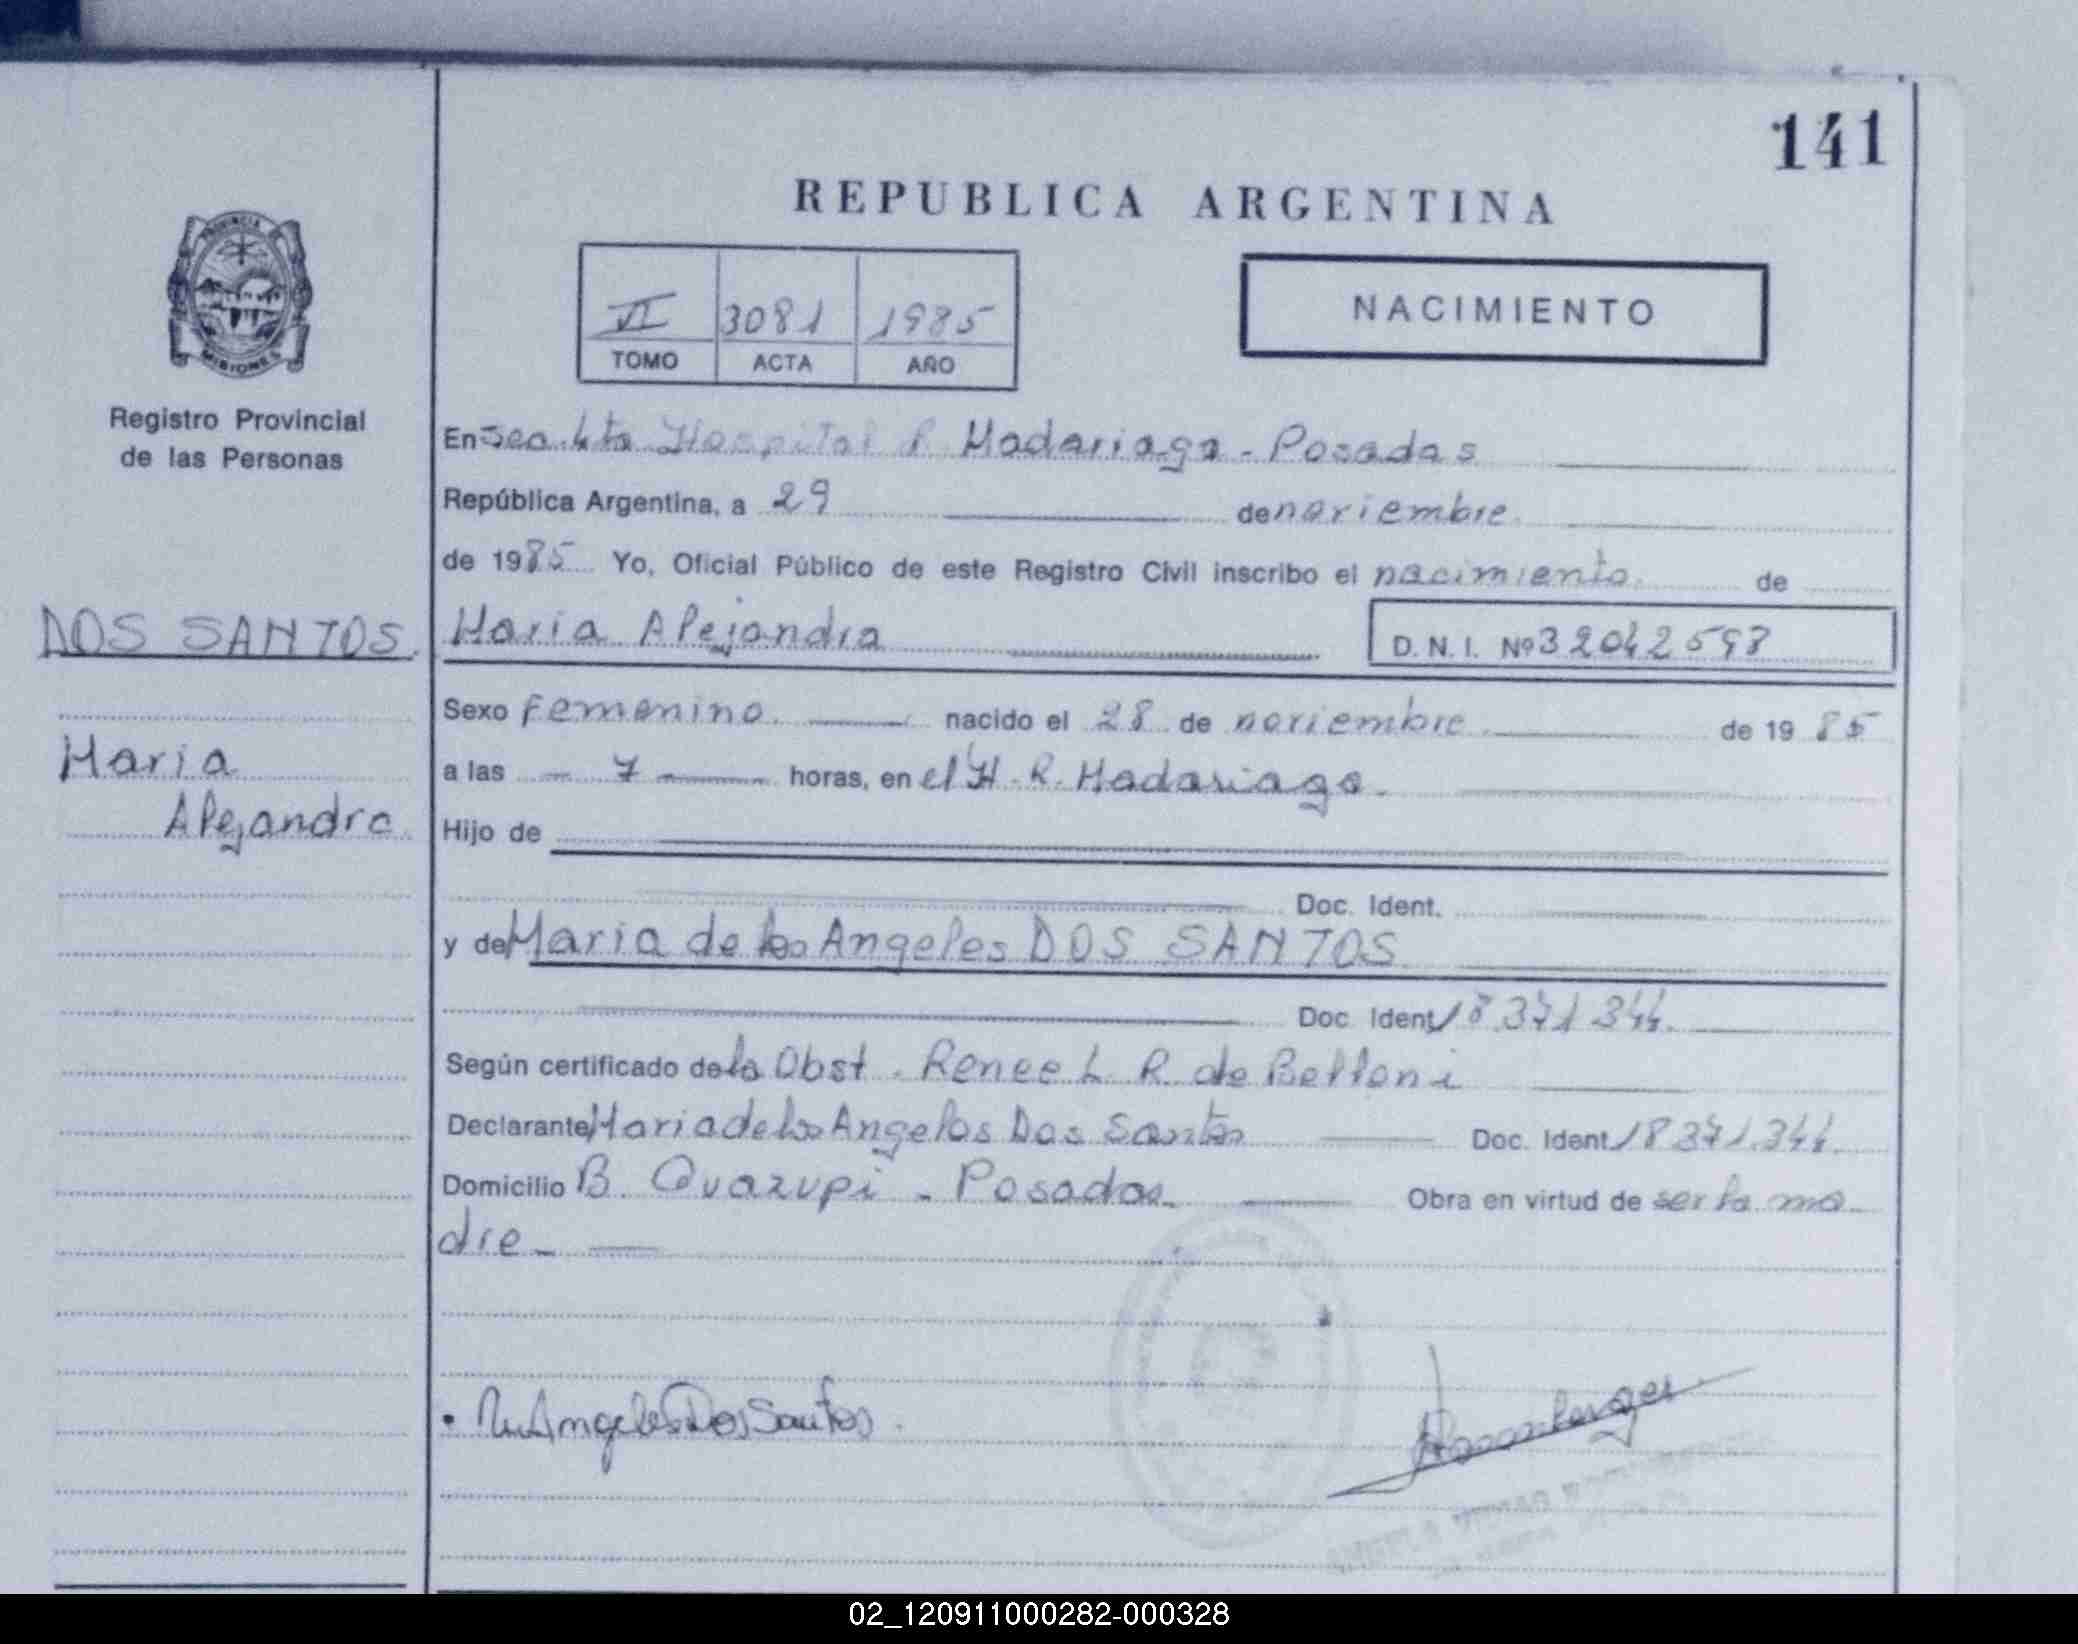 141
REPUBLICA ARGENTINA
PROVINCIA DE
MISIONES
Registro Provincial
de las Personas
VI 3081 1985
TOMO ACTA AÑO
NACIMIENTO
En Sec. 4ta Hospital R. Madariaga - Posadas
República Argentina, a 29 de noviembre
de 1985 Yo, Oficial Público de este Registro Civil inscribo el nacimiento de
DOS SANTOS
Maria Alejandra D. N. I. Nº 32042598
Sexo femenino nacido el 28 de noviembre de 1985
Maria
Alejandra
a las 7 horas, en el H. R. Madariaga.
Hijo de
Doc. Ident.
y de Maria de los Angeles DOS SANTOS
Doc. Ident. 18.371.344.
Según certificado de la Obst. Renee L. R. de Belloni
Declarante Maria de los Angeles Dos Santos Doc. Ident. 18.371.344.
Domicilio B. Quazupi - Posadas. Obra en virtud de ser la ma
dre -
M Angeles Dos Santos.
02_120911000282-000328